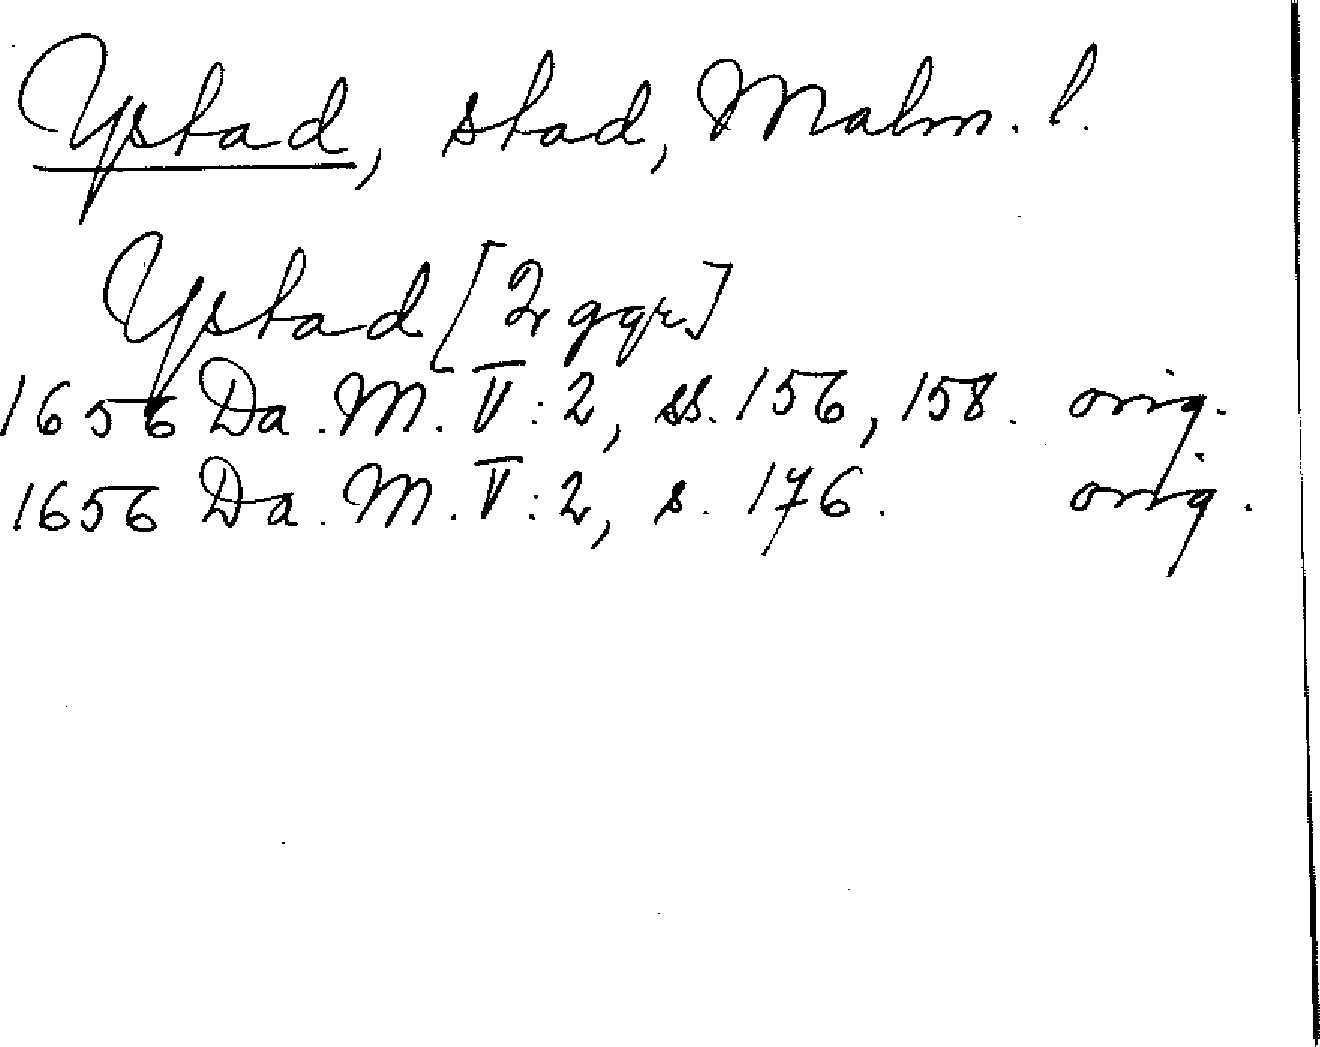 Ystad, stad, Malm. l.
Ystad [2 ggr]
1656 Da. M. V:2, ss. 156, 158. orig.
1656 Da. M. V:2, s. 176. orig.